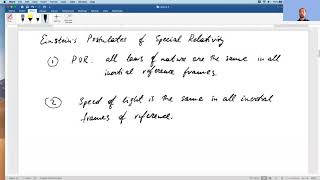 Einstein's Postulates of Special Relativity
① POR: all laws of nature are the same in all
inertial reference frames.
② Speed of light is the same in all inertial
frames of reference.